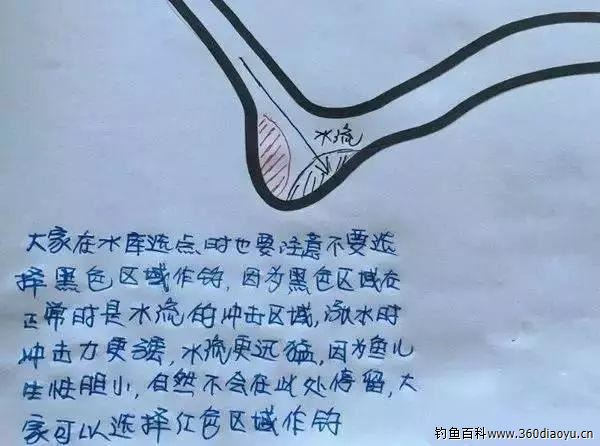 水流
大家在水库选点时也要注意不要选
择黑色区域作钓,因为黑色区域在
正常时是水流的冲击区域,涨水时
冲击力更强,水流更迅猛,因为鱼儿
生性胆小,自然不会在此处停留,大
家可以选择红色区域作钓
钓鱼百科www.360diaoyu.com.cn